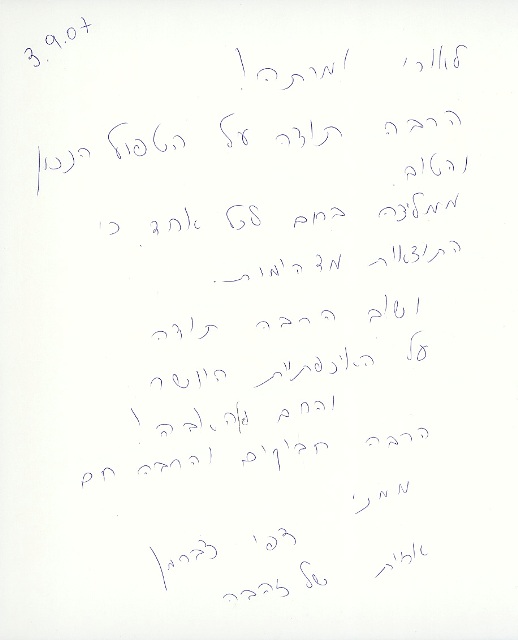 3.9.07
לאורי ומרתה!
הרבה תודה על הטפול הנכון
והטוב.
ממליצה בחום לכל אחד כי
התוצאות מדהימות.
ושוב הרבה תודה
על האיכפתיות היושר
והחום
הרבה חביקים והרבה חם
ממני
דפי
אחות של זהבה